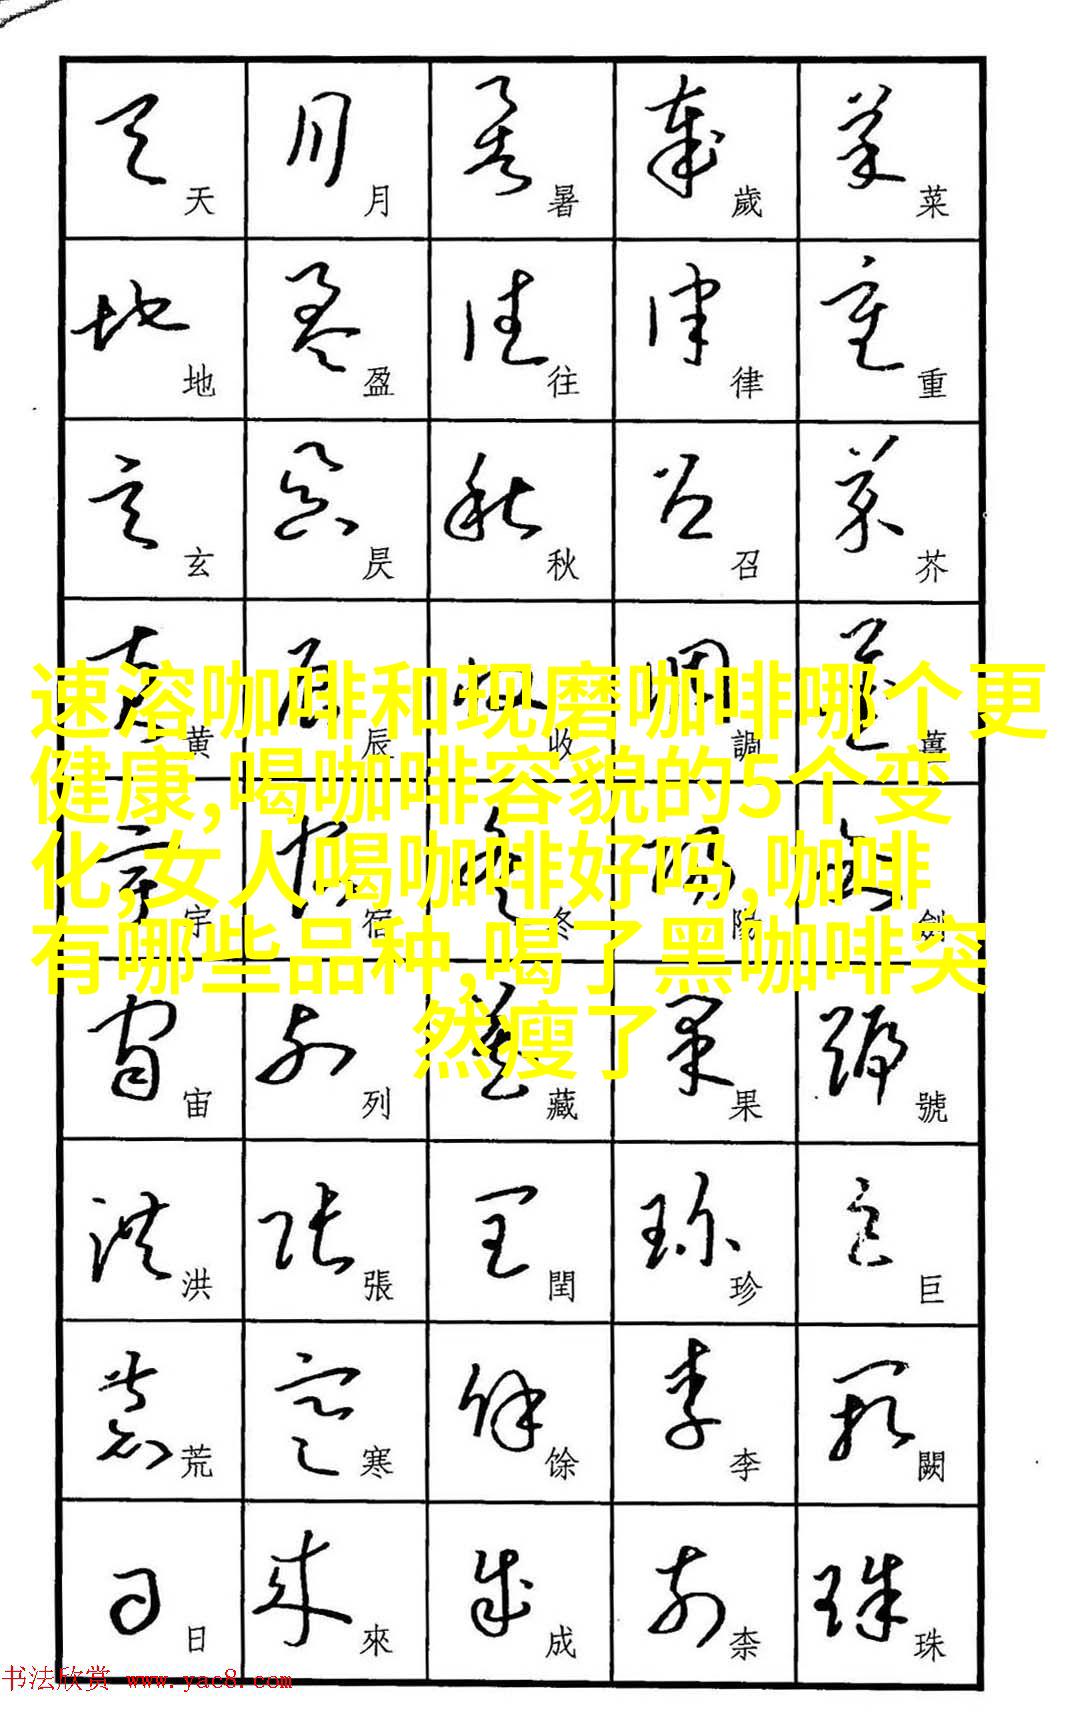 天 月 暑 歲 菜
地 盈 往 律 重
玄 昃 秋 召 芥
黄 辰 收 調 薑
速溶咖啡和现磨咖啡哪个更
健康,喝咖啡容貌的5个变
化,女人喝咖啡好吗,咖啡
有哪些品种,喝了黑咖啡突
然瘦了
宇 宿 冬 陽 劍
宙 列 藏 果 號
洪 張 閏 珍 巨
荒 寒 馀 李 闕
日 來 成 柰 珠
书法欣赏 www.yac8.com